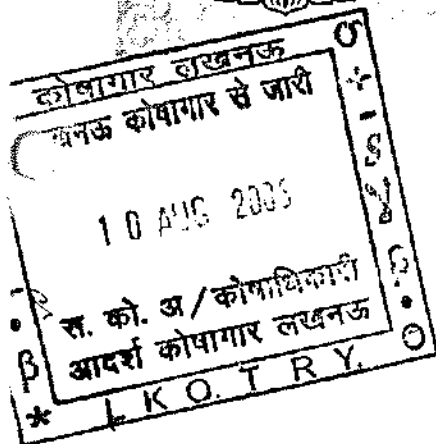 कोषागार लखनऊ
खनऊ कोषागार से जारी
10 AUG 2005
स. को. अ / कोषाधिकारी
आदर्श कोषागार लखनऊ
L K O. T R Y.